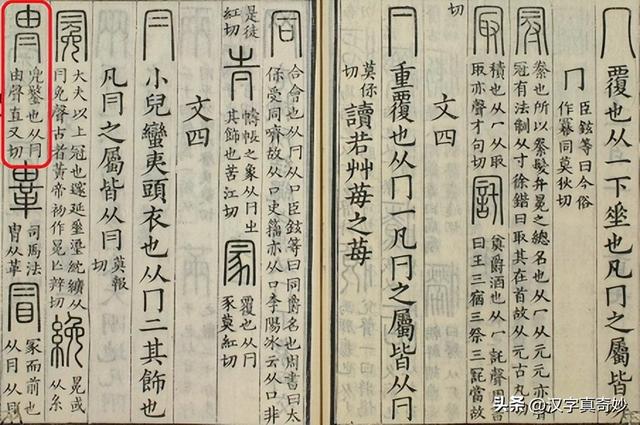 冖覆也从一下垂也凡冖之屬皆
冖臣鉉等曰今俗
作冪同莫狄切
冠絭也所以絭髮弁冕之總名也从冖从元元亦聲
冠有法制从寸徐鍇曰取其在首故从元古丸切
冣積也从冖从取
取亦聲才句切
𠖗奠爵酒也从冖託聲周書
曰王三宿三祭三𠖗當故
切
文四
𠔼重覆也从冖一凡𠔼之屬皆从𠔼
莫保
切
讀若艸苺之苺
同合會也从𠔼从口臣鉉等曰同爵名也周書曰太
保受同嚌故从口史籀亦从口李陽冰云从口非
是徒
紅切
𡉚幬帳之象从𠔼屮
其飾也苦江切
冡覆也从𠔼
豕莫紅切
文四
冃小兒蠻夷頭衣也从冂二其飾也
凡冃之屬皆从冃
莫報
切
冕大夫以上冠也邃延垂瑬紞纊从
冃免聲古者黃帝初作冕亡辨切
絻冕或
从糸
冑兜鍪也从冃
由聲直又切
𩊄司馬法
冑从革
冒冡而前也
从冃从目
头条 @汉字真奇妙